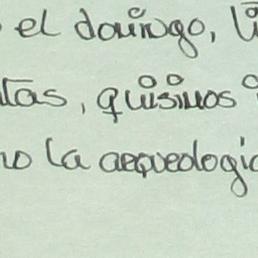 el domingo,
tas, quisimos
no la aequeologic